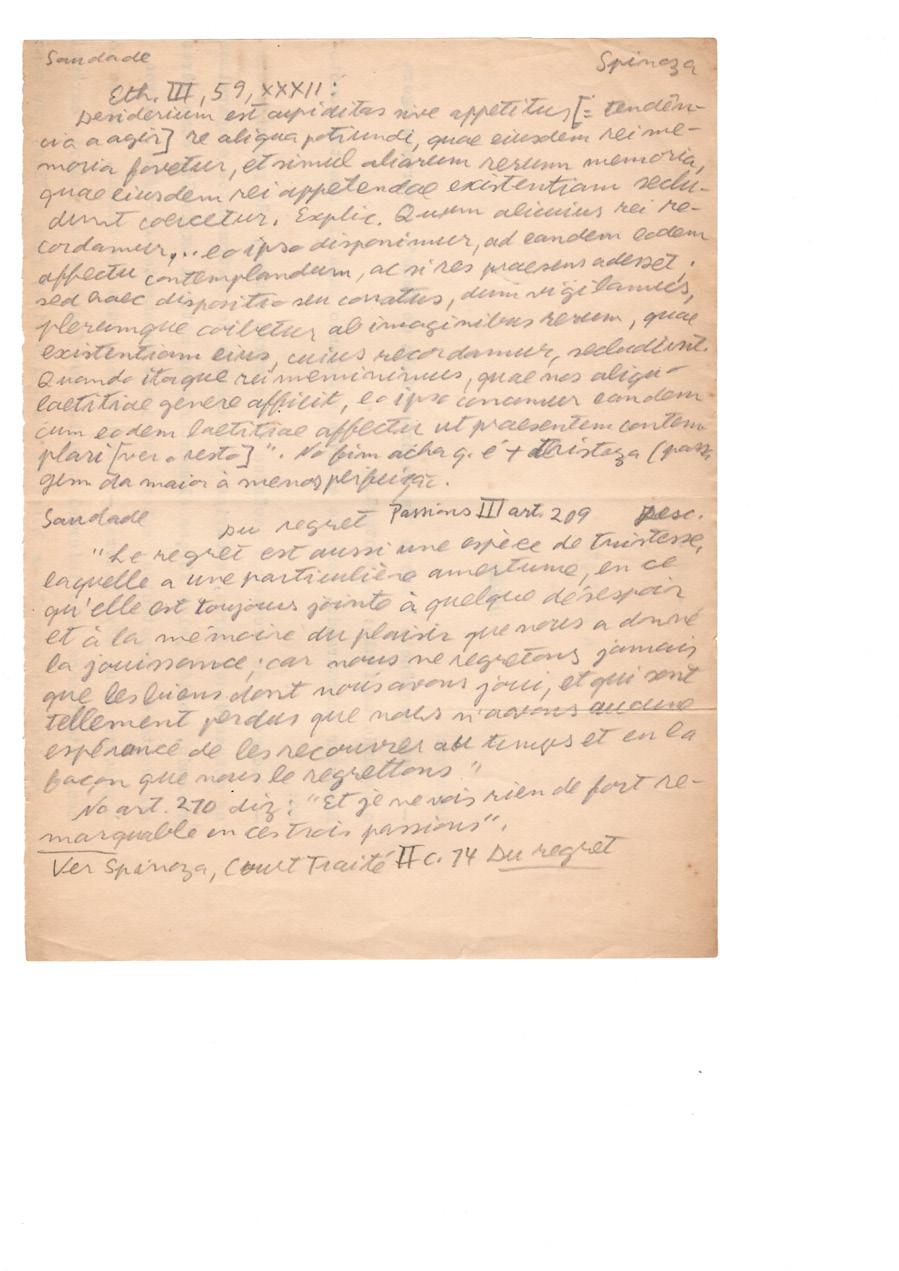 Saudade Spinoza
Eth. III, 59, XXXII:
Desiderium est cupiditas sive appetitus [= tendên-
cia a agir] re aliqua potiundi, quae eiusdem rei me-
moria fovetur, et simul aliarum rerum memoria,
quae eiusdem rei appetendae existentiam seclu-
dunt coercetur. Explic. Quum alicuius rei re-
cordamur,... eo ipso disponimur, ad eandem eodem
affectu contemplandum, ac si res praesens adesset.
sed haec dispositio seu conatus, dum vigilamus,
plerumque coibetur ab imaginibus rerum, quae
existentiam eius, cuius recordamur, secludunt.
Quando itaque rei meminimus, quae nos aliquo
laetitiae genere afficit, eo ipso conamur eandem
cum eodem laetitiae affectu ut praesentem contem
plari [ver o resto]". No fim acha q. é + tristeza (passa
gem da maior à menos perfeição.
Saudade Du regret Passions III art. 209 Desc.
"Le regret est aussi une espèce de tristesse,
laquelle a une particulière amertume, en ce
qu'elle est toujours jointe à quelque désespoir
et à la mémoire du plaisir que nous a donné
la jouissance; car nous ne regretons jamais
que les biens dont nous avons joui, et qui sont
tellement perdus que nous n'avons aucune
espérance de les recouvrer au temps et en la
façon que nous le regrettons"
No art. 210 diz: "Et je ne vois rien de fort re-
marquable en ces trois passions".
Ver Spinoza, Court Traité II c. 14 Du regret